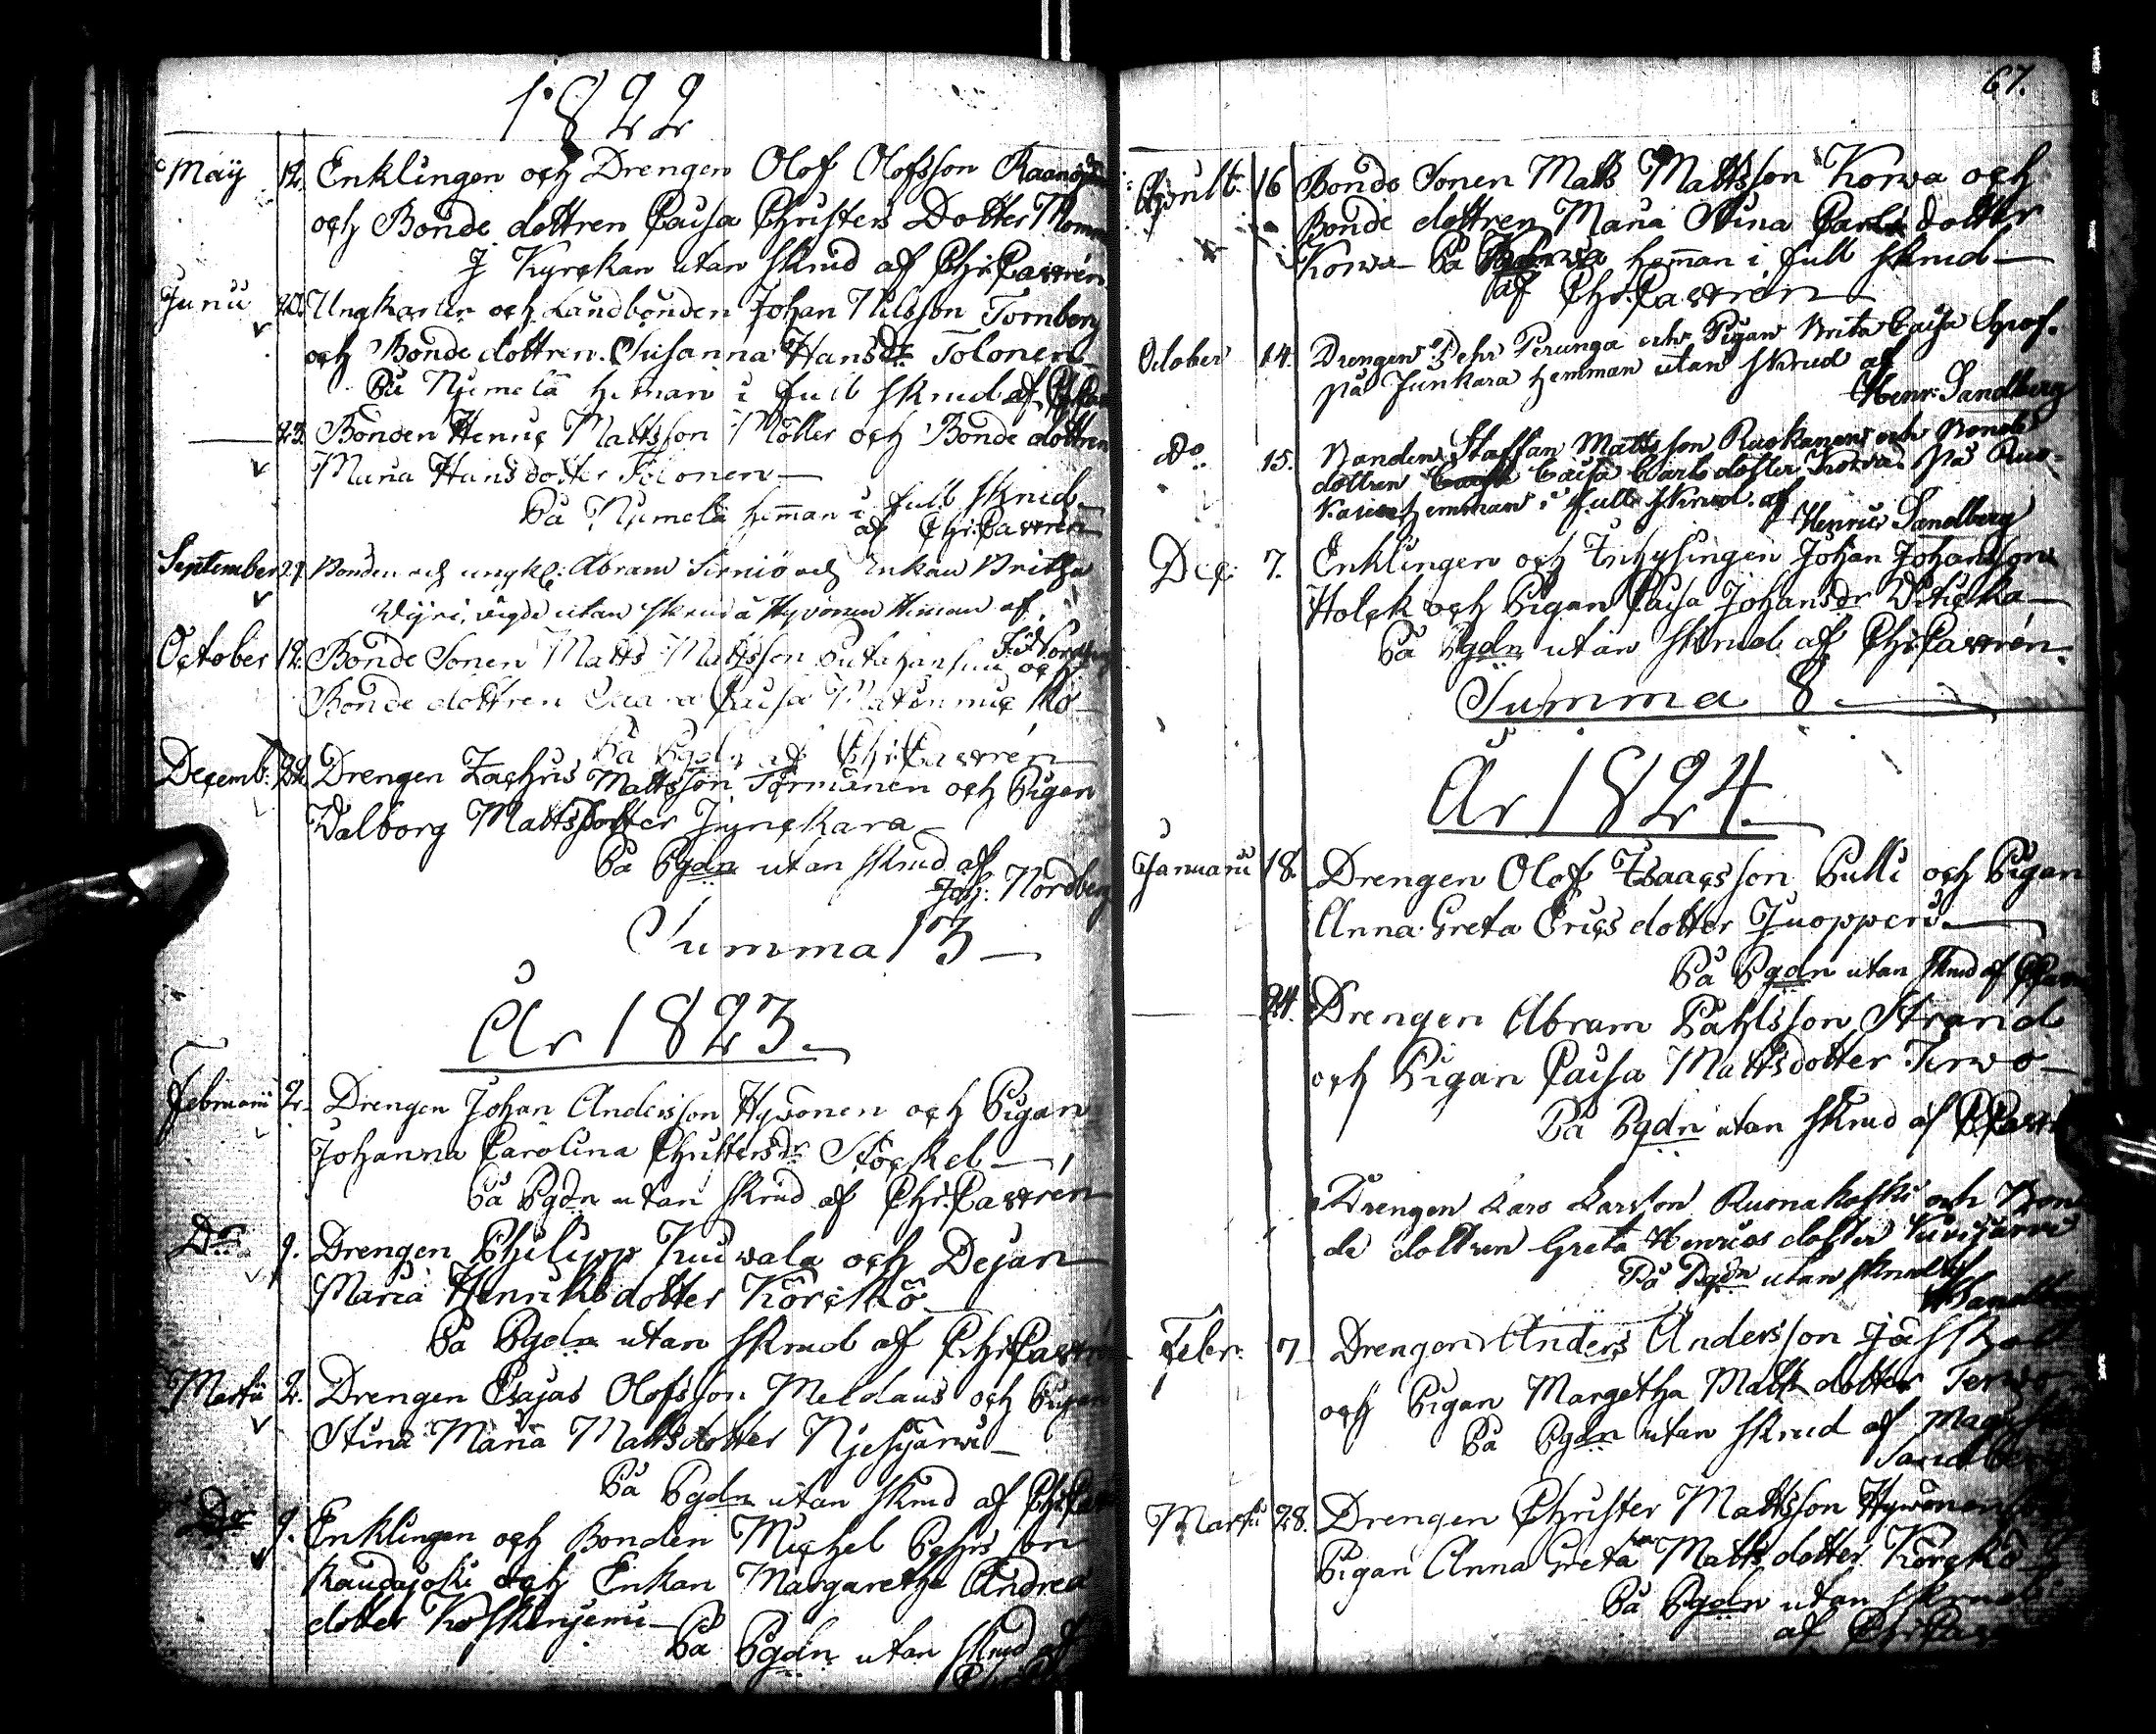 1822
May 12. Enklingen och Drengen Olof Olofsson
och Bonde dottren Caisa Christers Dotter
J Kyrckan utan skrud af Chr: Castrén
Junii 20. Ungkarlen och Landbonden Johan Nilsson Tornberg
och Bonde dottren Susanna Hansdr Tolonen
På Njemelä heman i full skrud af
23. Bonden Henric Mattsson Möller och Bonde dottren
Maria Hans dotter Tolonen
På Njemelä heman i full skrud
af Chr: Castrén
September 21. Bonden och ungk: Abram Sirniö och Enkan Britha
Wijri, vigde utan skrud å Hyvönen Heman af
October 12. Bonde Sonen Matts Mattsson och
Bonde dottren Caisa
På Pgdn af Chr: Castrén
Decemb: Drengen Zachris Mattsson Törmänen och Pigan
Walborg Mattsdotter Junckara
På Pgdn utan skrud af
Joh: Nordberg
Summa 13
År 1823.
Februarii 2. Drengen Johan Andersson Hyvönen och Pigan
Johanna Carolina Christersdr Stöckel
På Pgdn utan skrud af Chr: Castrén
Do 9. Drengen Philipp Kuivala och Dejan
Maria Henriksdotter Körckö
På Pgdn utan skrud af Chr: Castrén
Martii 2. Drengen Esajas Olofsson Meldaus och Pigan
Stina Maria Mattsdotter Njesijärvi
På Pgdn utan skrud af
Do 9. Enklingen och Bonden Michel Pehrsson
Raudajoki och Enkan Margaretha Andrea
dotter Koskenjemi
På Pgdn utan skrud af
67.
16 Bonde Sonen Matts Mattsson Korva och
Bonde dottren Maria Stina Carls dotter
Korva På heman i full skrud
af Chr: Castrén
October 14. Drengen Pehr Perunga och Pigan Brita Caisa
på Junkara hemman utan skrud af
Henr: Sandberg
Do 15. Bonden Staffan Mattsson Ruokanen och Bonde
dottren Caisa Carlsdotter Korva på Ruo-
kanen hemman i full skrud af
Henric Sandberg
Dec: 7. Enklingen och Inhysingen Johan Johansson
Holck och Pigan Caisa Johansdr
På Pgdn utan skrud af Chr: Castrén
Summa 8
År 1824.
Januarii 18. Drengen Olof Isaacsson Pulli och Pigan
Anna Greta Erics dotter Juopperi
På Pgdn utan skrud af
24. Drengen Abram Pahlsson Strand
och Pigan Caisa Mattsdotter Terwo
På Pgdn utan skrud af
Drengen Lars Larsson Ruonakoski och Bon
de dottren Greta Henrics dotter
På Pgdn utan skrud af
Febr: 7 Drengen Anders Andersson
och Pigan Margetha Matts dotter Terwo
På Pgdn utan skrud af
Sandberg
Martii 28. Drengen Christer Mattsson Hyvönen
Pigan Anna Greta Matts dotter Körckö
På Pgdn utan skrud
af